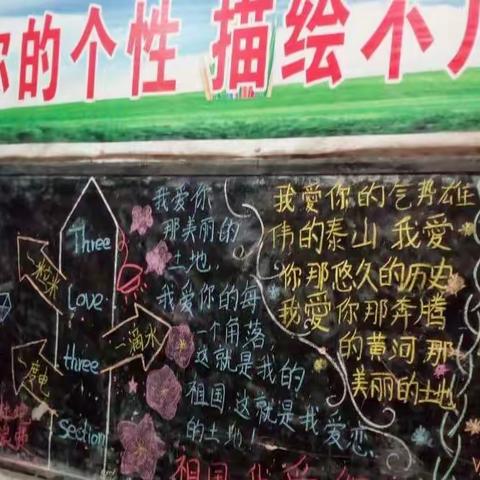 你的个性 描绘不凡
Three
Love
three
section
一滴水
一度电
我爱你
那美丽的
土地，
我爱你的每
一个角落，
这就是我的
祖国这就是我爱恋
的土地！
我爱你的气势雄
伟的泰山 我爱
你那悠久的历史
我爱你那奔腾
的黄河 那
美丽的土地
祖国